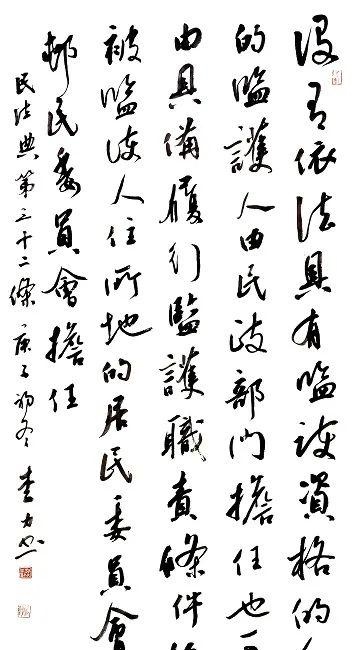 沒有依法具有監護資格的
的監護人由民政部門擔任也
由具備履行監護職責條件
被監護人住所地的居民委員會
邨民委員會擔任
民法典第三十二條 庚子初冬